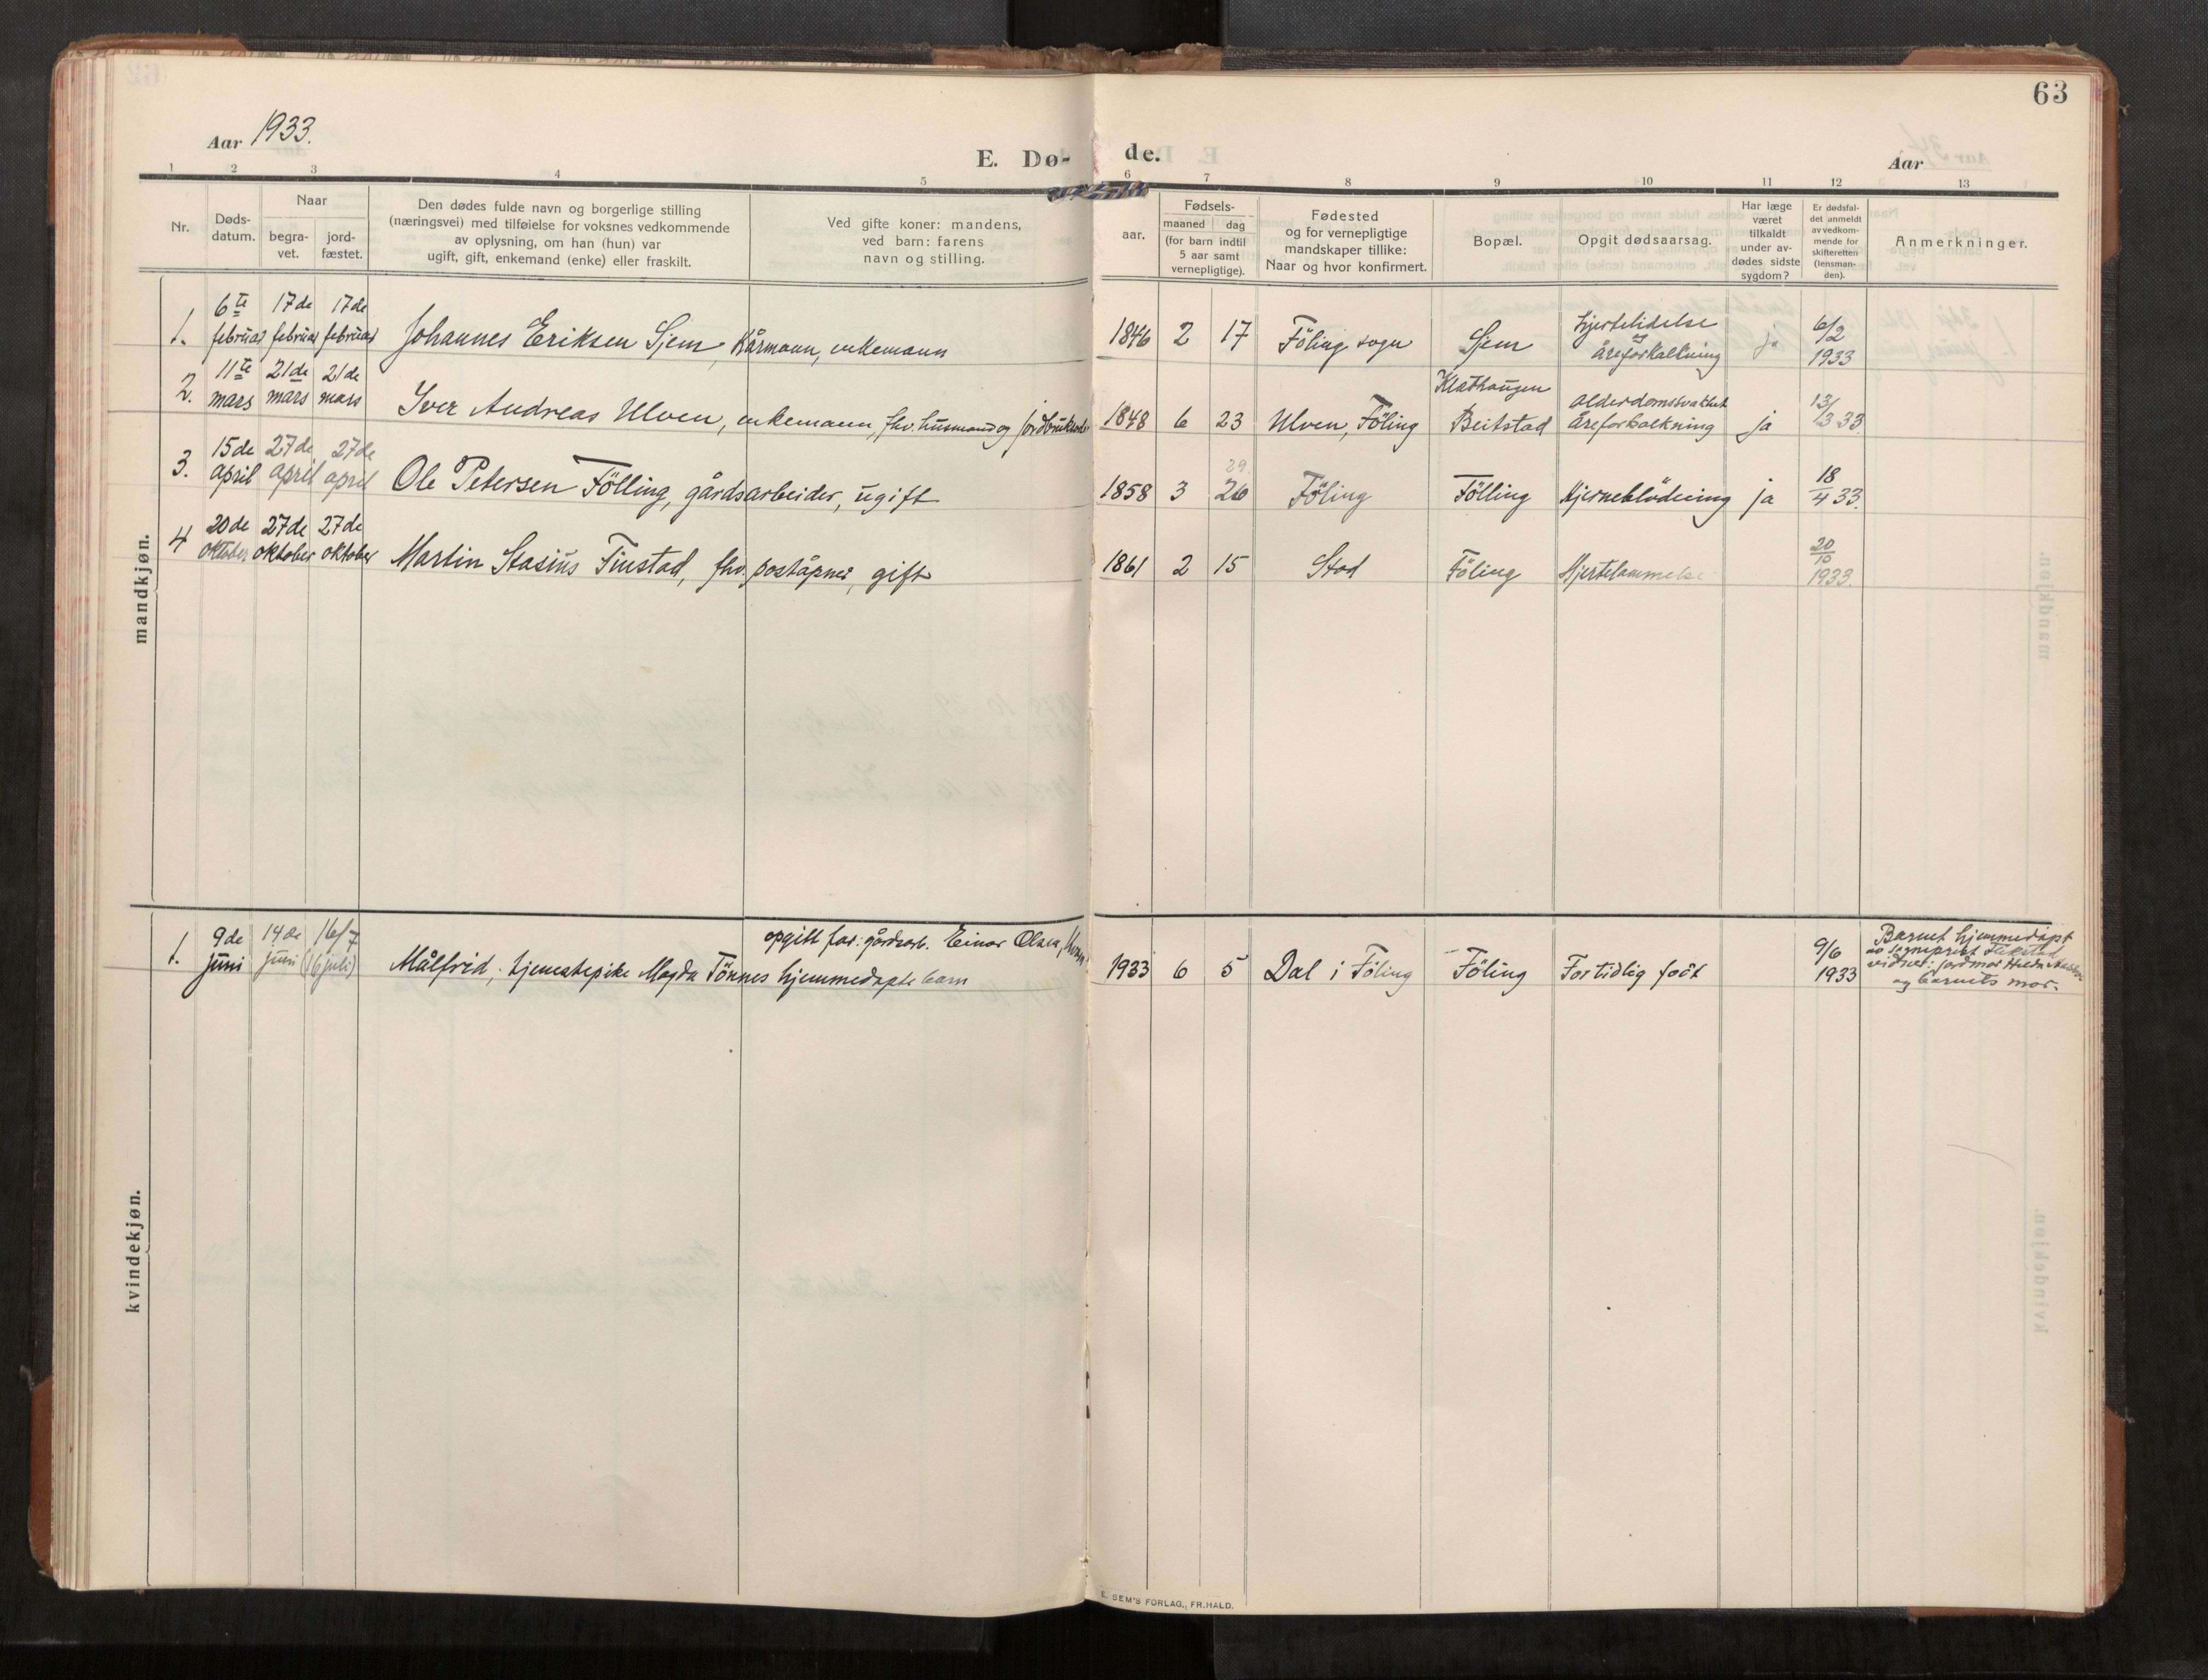 63
Aar 1933.
E. Dø- de.
Aar
1 2 3 4 5 6 7 8 9 10 11 12 13
Nr.
Døds-
datum.
Naar
begra-
vet.
jord-
fæstet.
Den dødes fulde navn og borgerlige stilling
(næringsvei) med tilføielse for voksnes vedkommende
av oplysning, om han (hun) var
ugift, gift, enkemand (enke) eller fraskilt.
Ved gifte koner: mandens,
ved barn: farens
navn og stilling.
Fødsels-
aar.
maaned dag
(for barn indtil
5 aar samt
vernepligtige).
Fødested
og for vernepligtige
mandskaper tillike:
Naar og hvor konfirmert.
Bopæl.
Opgit dødsaarsag.
Har læge
været
tilkaldt
under av-
dødes sidste
sygdom?
Er dødsfal-
det anmeldt
av vedkom-
mende for
skifteretten
(lensman-
den).
Anmerkninger.
mandkjøn.
1. 6te februar 17de februar 17de februar Johannes Eriksen Sjem, Kårmann, enkemann 1846 2 17 Föling sogn Sjem Hjertelidelse og åreforkalkning ja 6/2 1933
2. 11te mars 21de mars 21de mars Iver Andreas Ulven, enkemann, fhv. husmand og jordbruker 1848 6 23 Ulven, Föling Beitstad Alderdomsvakhet åreforkalkning ja 13/3 33
3. 15de april 27de april 27de april Ole Petersen Fölling, gårdsarbeider, ugift 1858 3 29. 26 Föling Fölling Hjerneblödning ja 18/4 33.
4 20de oktober 27de oktober 27de oktober Martin Stasius Finstad, fhv. poståpner, gift 1861 2 15 Stod Föling Hjertelammelse 20/10 1933.
kvindekjøn.
opgitt far: gårdsarb. Einar Olsen,
1. 9de juni 14de juni 16/7 (16 juli) Målfrid, tjenestepike Magda Tönnes hjemmedøpte barn 1933 6 5 Dal i Föling Föling For tidlig født 9/6 1933
Barnet hjemmedøpt
av sogneprest
vidner: jordmor
og barnets mor.
E. SEM'S FORLAG., FR.HALD.